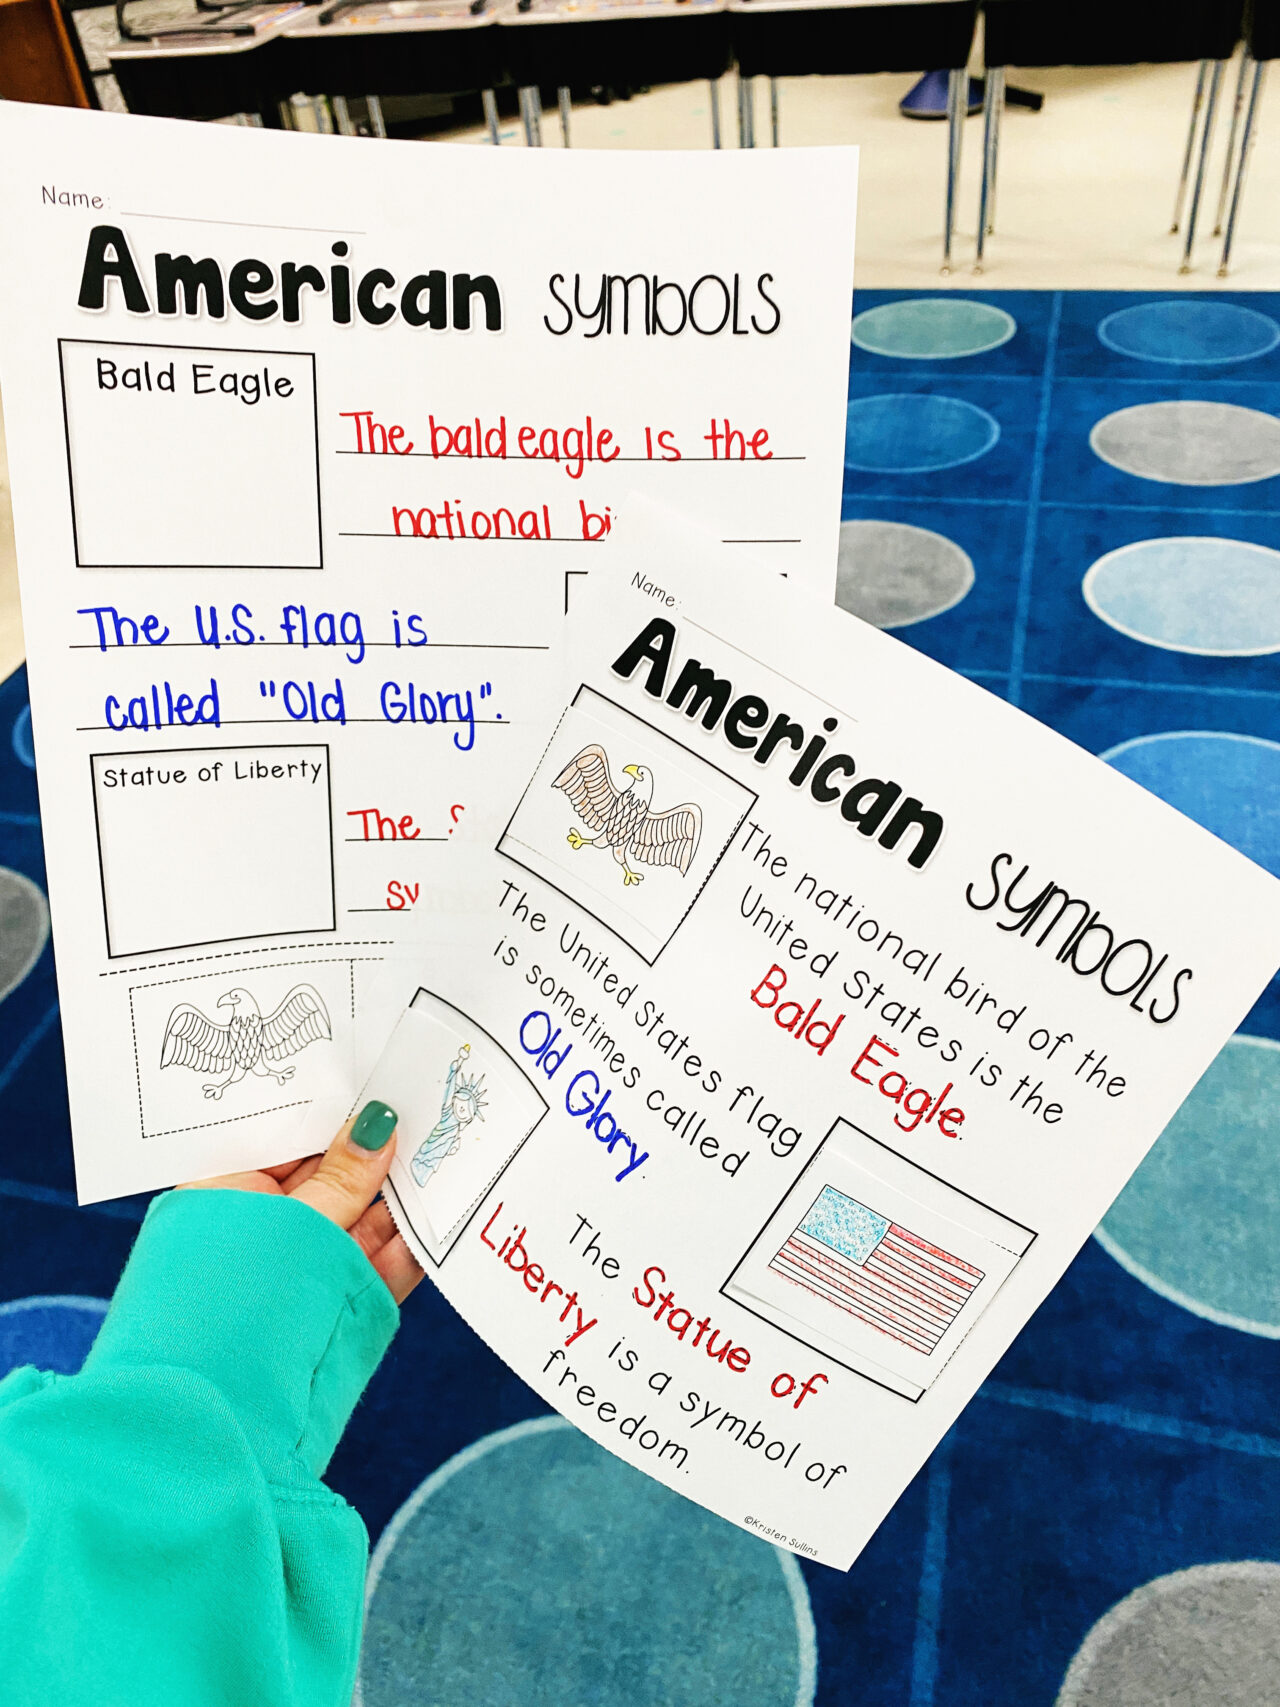 Name:
American SYMBOLS
Bald Eagle
The bald eagle is the
national
The U.S. flag is
called "Old Glory".
Statue of Liberty
The
Name:
American SYMBOLS
The national bird of the
United States is the
Bald Eagle.
The United States flag
is sometimes called
Old Glory.
The Statue of
Liberty is a symbol of
freedom.
©Kristen Sullins